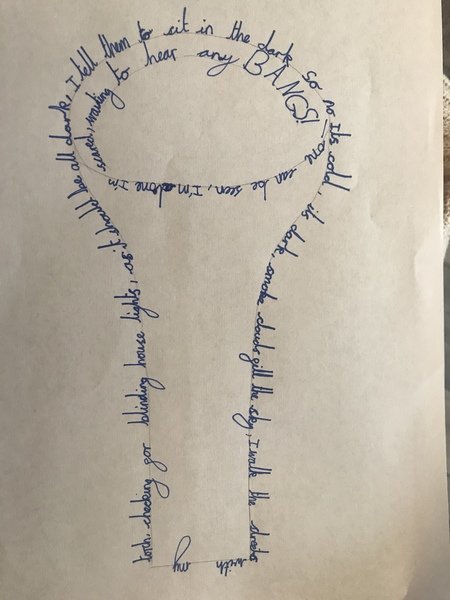 Its cold, its dark, smoke clouds fill the sky, I walk the streets
with my
torch, checking for blinding house lights, so, it should be all dark, I tell them to sit in the dark so no
one can be seen, I'm alone I'm scared, waiting to hear any BANGS!